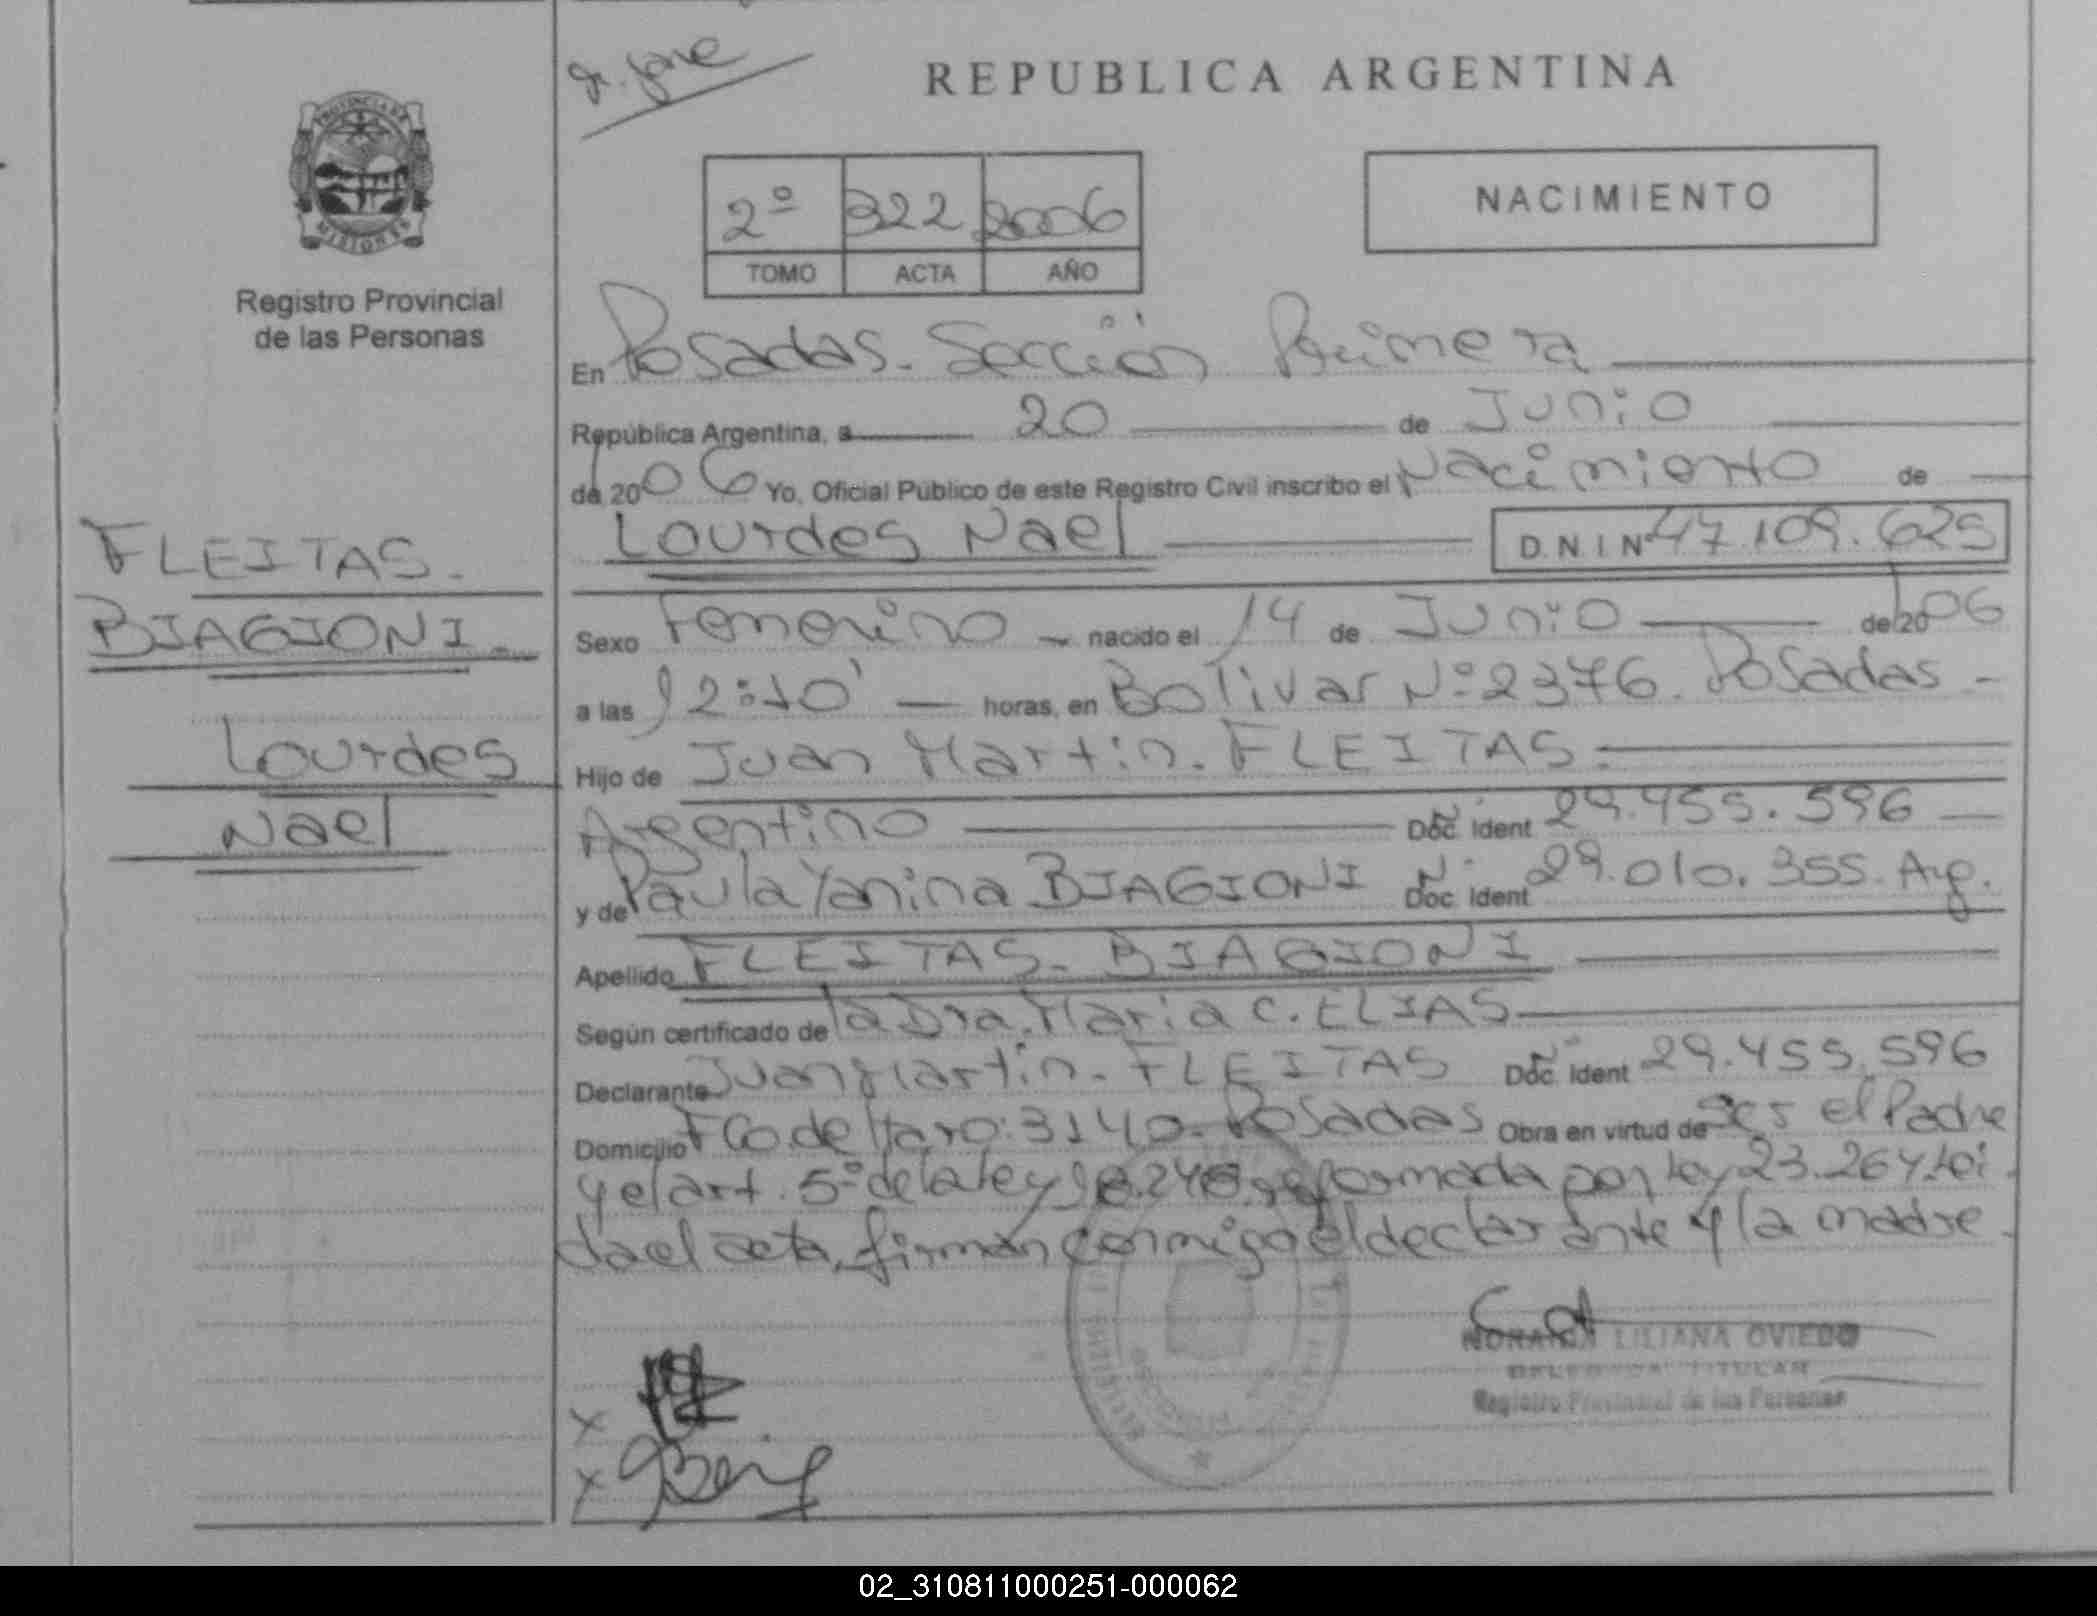 REPUBLICA ARGENTINA
PROVINCIA DE
MISIONES
Registro Provincial
de las Personas
2º 322 2006
TOMO ACTA AÑO
NACIMIENTO
En Posadas. Sección Primera
República Argentina, a 20 de Junio
de 2006 Yo, Oficial Público de este Registro Civil inscribo el Nacimiento de
Lourdes Nael D.N.I Nº 47.109.625
FLEITAS.
BIAGIONI.
Lourdes
Nael
Sexo Femenino nacido el 14 de Junio de 2006
a las 12:10' horas, en Bolivar Nº 2376. Posadas
Hijo de Juan Martin. FLEITAS.
Argentino Doc. Ident 29.455.596
y de Paula Yanina BIAGIONI Doc. Ident 29.010.355. Arg.
Apellido FLEITAS. BIAGIONI
Según certificado de la Dra. Maria C. ELIAS
Declarante Juan Martin. FLEITAS Doc. Ident 29.455.596
Domicilio FCo. de Haro: 3140. Posadas Obra en virtud de ser el Padre
y el art. 5º de la ley 18.248 reformada por ley 23.264. Lei
da el acta, firman conmigo el declarante y la madre.
LILIANA OVIEDO
DELEGADA TITULAR
Registro Provincial de las Personas
02_310811000251-000062